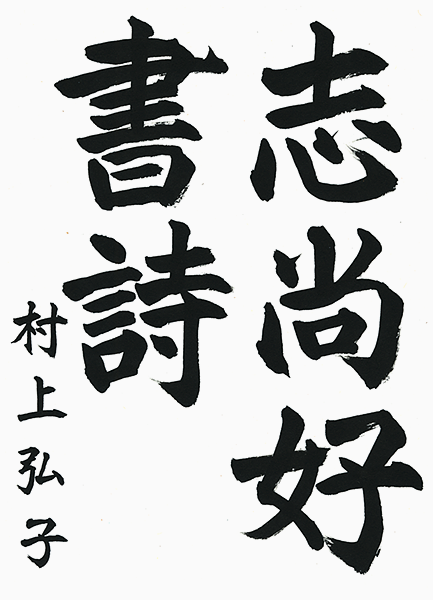 志尚好
書詩
村上弘子